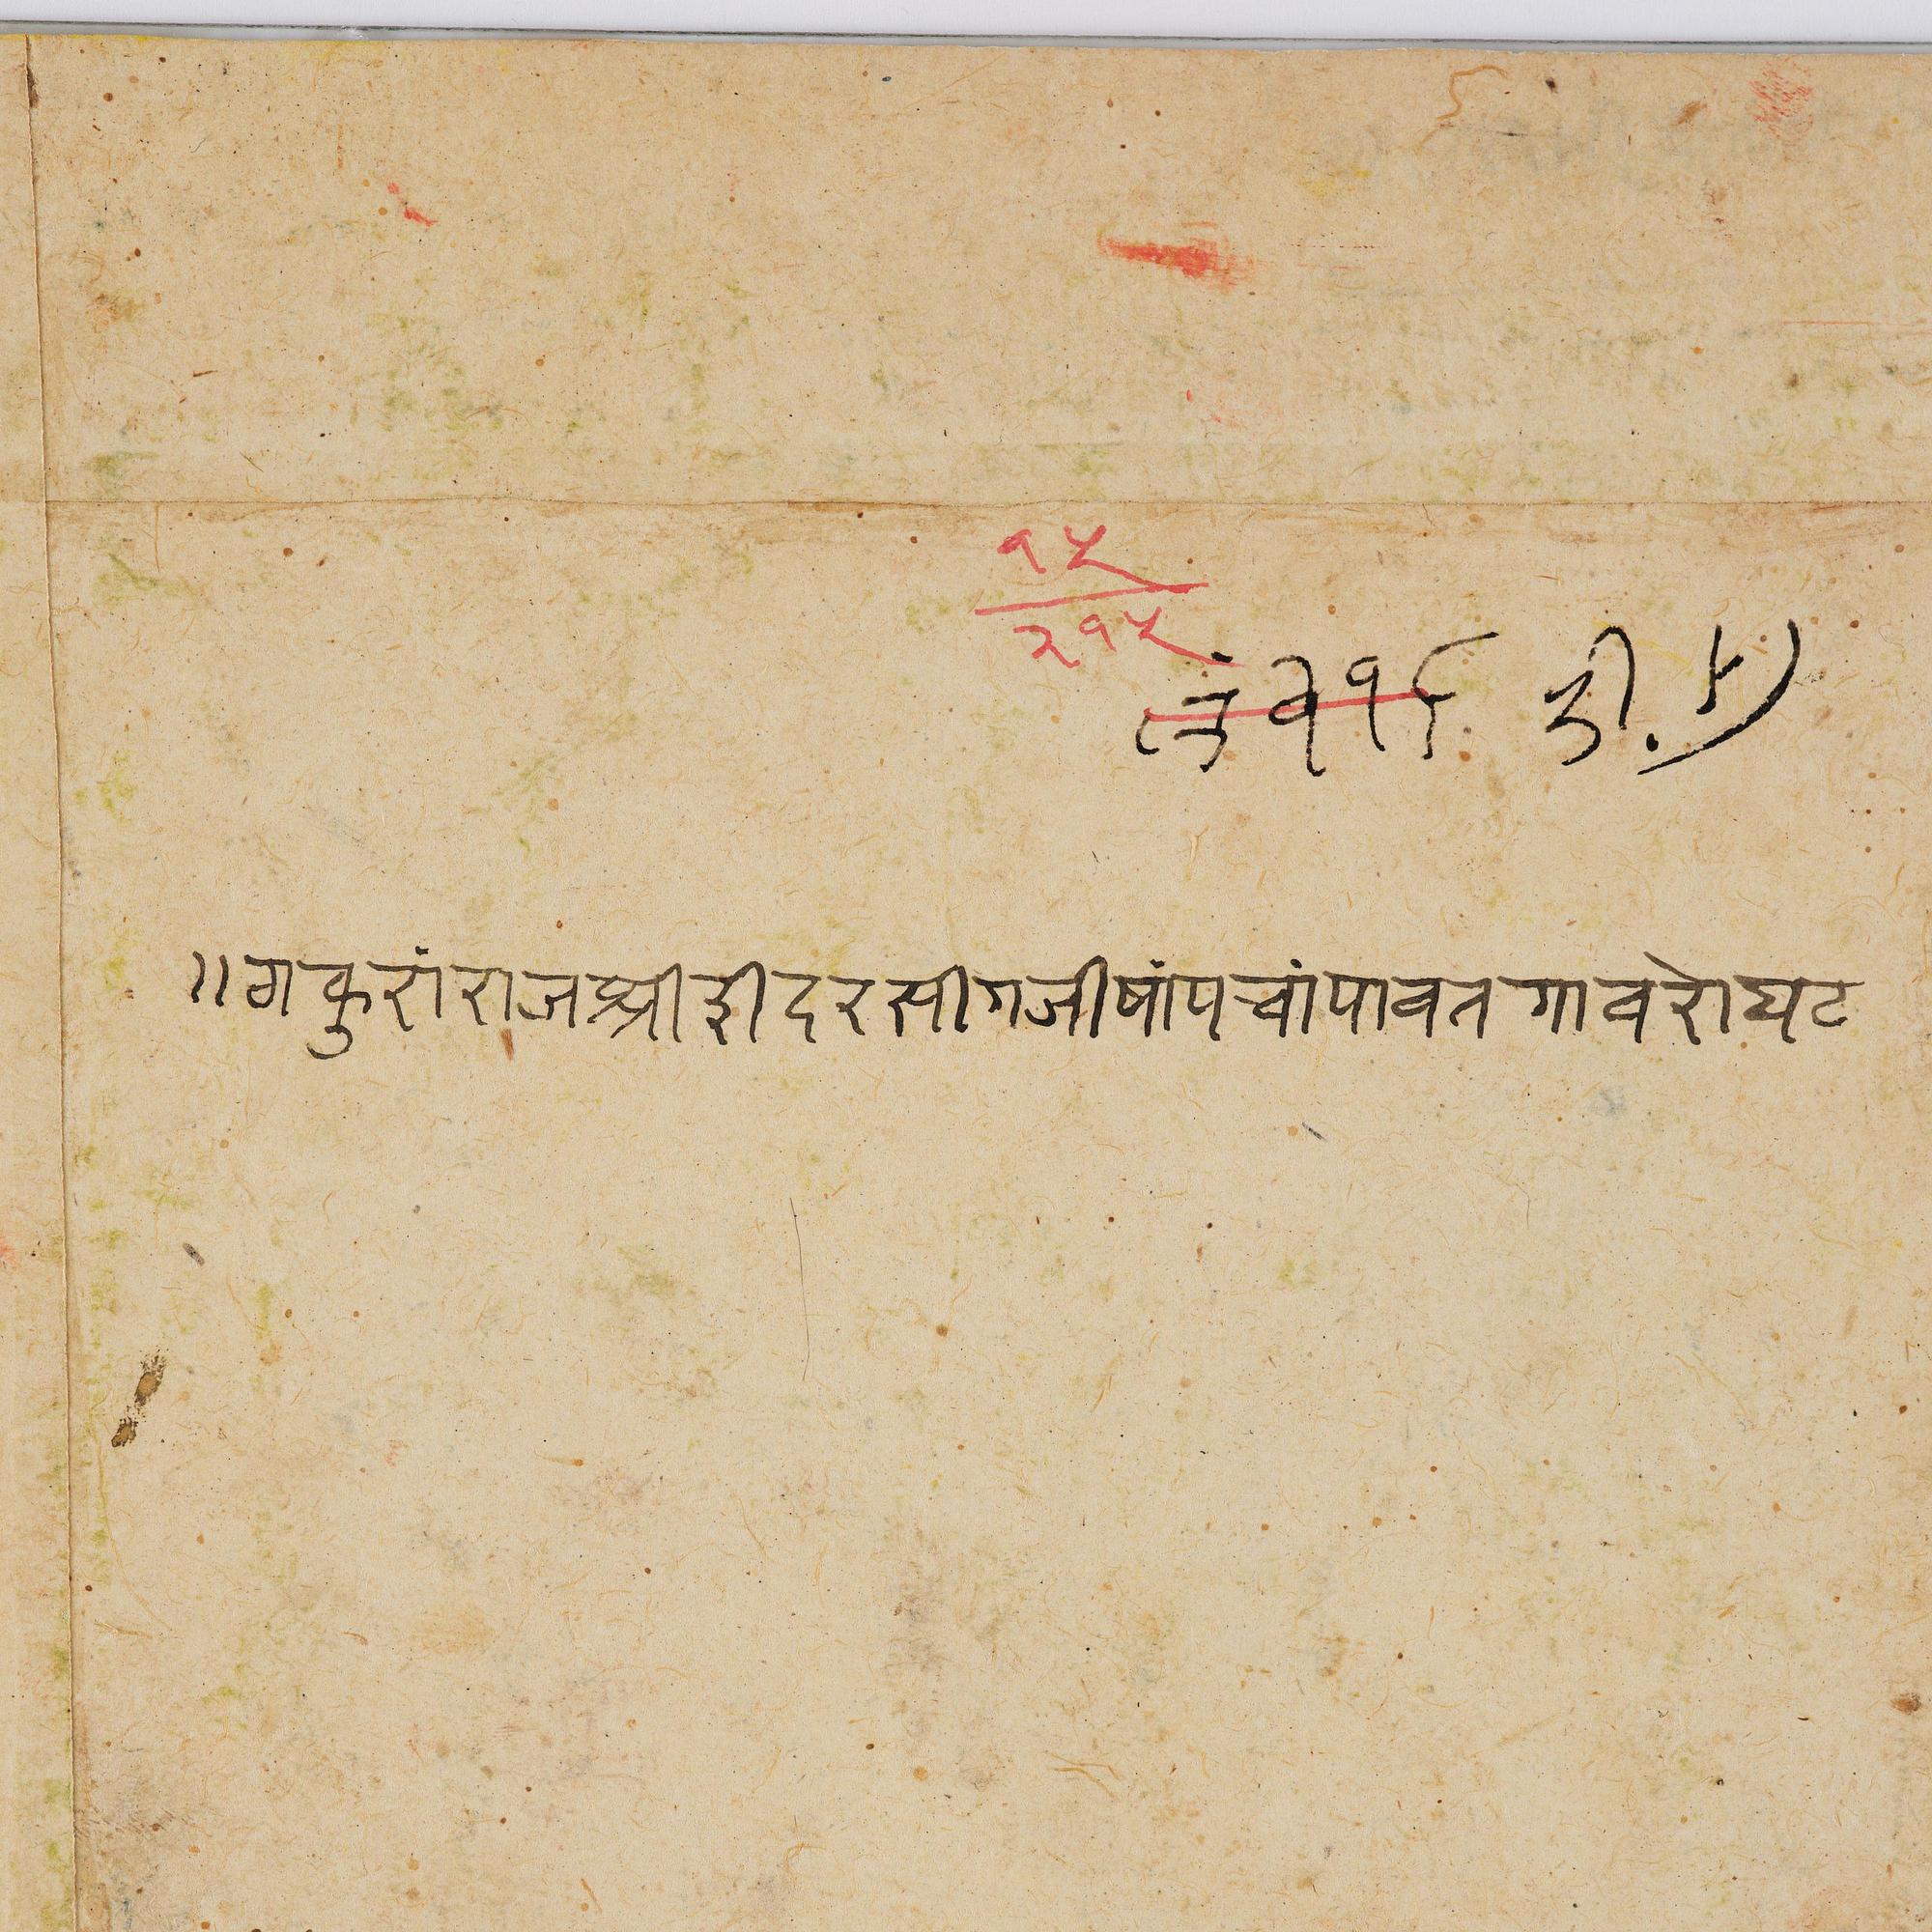 १५
२१५
नं २१८ की. ५)
॥ ठाकुरां राज श्री ईदरसीगजी षांप चांपावत गाव रोयट